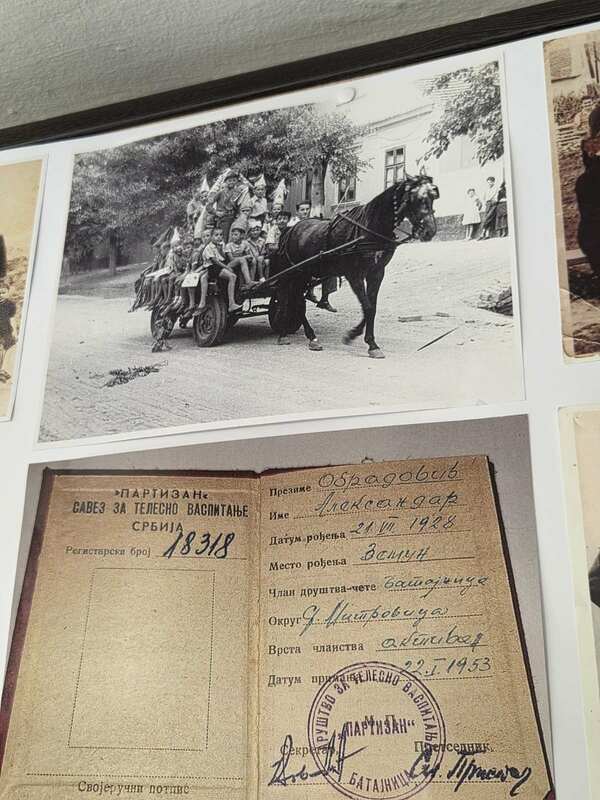 »ПАРТИЗАН«
САВЕЗ ЗА ТЕЛЕСНО ВАСПИТАЊЕ
СРБИЈА
Регистарски број 18318
Својеручни потпис
Презиме Обрадовић
Име Александар
Датум рођења 21 VII 1928
Место рођења Земун
Члан друштва-чете Батајница
Округ С. Митровица
Врста чланства активан
Датум приема 22. I. 1953
ДРУШТВО ЗА ТЕЛЕСНО ВАСПИТАЊЕ
М. П.
„ПАРТИЗАН“
БАТАЈНИЦА
Секретар,
Претседник,